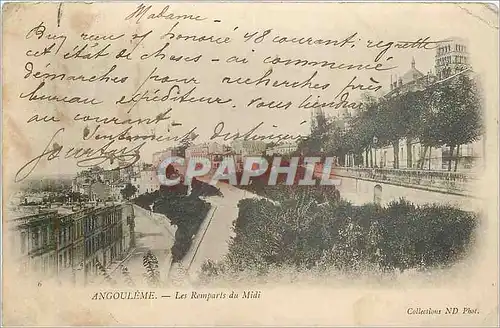 Madame -
Bien reçu honorié 48 courant, regrette
cet état de choses - ai commencé
démarches pour recherches près
bureau expéditeur. Vous tiendrai
au courant.
Sentiments
CAPHIL
ANGOULÊME. — Les Remparts du Midi
Collections ND Phot.